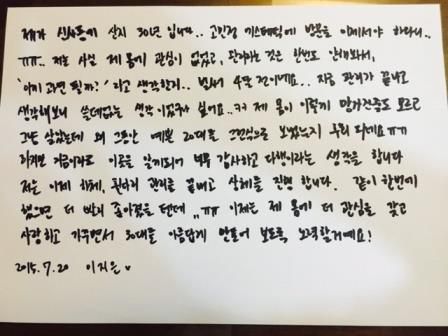 제가 신사동에 산지 30년 입니다.. 고민정 에스테틱에 방문을 이제서야 하다니..
ㅠㅠ.. 저는 사실 제 몸에 관심이 없었고, 관리라는 것은 한번도 안해봐서,
'아끼 과연 될까?' 라고 생각한지.. 벌써 4달 전이네요.. 지금 관리가 끝나고
생각해보니 쓸데없는 생각이었구나 싶어요..ㅋㅋ 제 몸이 이렇게 망가진줄도 모르고
그냥 살았는데 왜 그동안 예쁜 20대를 보냈는지 후회 되네요ㅠㅠ
하지만 지금이라도 이곳을 알게되어 너무 감사하고 다행이라는 생각을 합니다
저는 이제 하체, 관리를 끝내고 상체를 진행 합니다. 같이 한번에
했으면 더 빨리 좋아졌을 텐데 ,,ㅠㅠ 이제는 제 몸에 더 관심을 갖고
사랑하고 가꾸면서 30대를 아름답게 만들어 보도록 노력할거예요!
2015.7.20 이지은